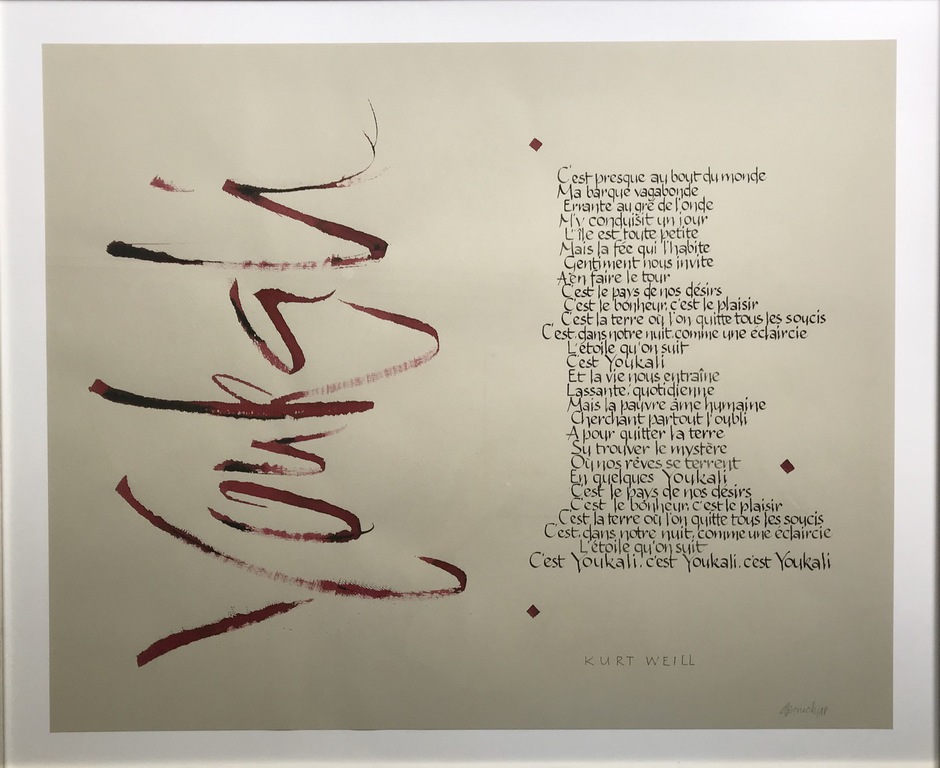 Youkali
C'est presque au bout du monde
Ma barque vagabonde
Errante au gré de l'onde
M'y conduisit un jour
L'île est toute petite
Mais la fée qui l'habite
Gentiment nous invite
A en faire le tour
C'est le pays de nos désirs
C'est le bonheur, c'est le plaisir
C'est la terre où l'on quitte tous les soucis
C'est, dans notre nuit, comme une éclaircie
L'étoile qu'on suit
C'est Youkali
Et la vie nous entraîne
Lassante, quotidienne
Mais la pauvre âme humaine
Cherchant partout l'oubli
A pour quitter la terre
Su trouver le mystère
Où nos rêves se terrent
En quelques Youkali
C'est le pays de nos désirs
C'est le bonheur, c'est le plaisir
C'est la terre où l'on quitte tous les soucis
C'est, dans notre nuit, comme une éclaircie
L'étoile qu'on suit
C'est Youkali, c'est Youkali, c'est Youkali
KURT WEILL